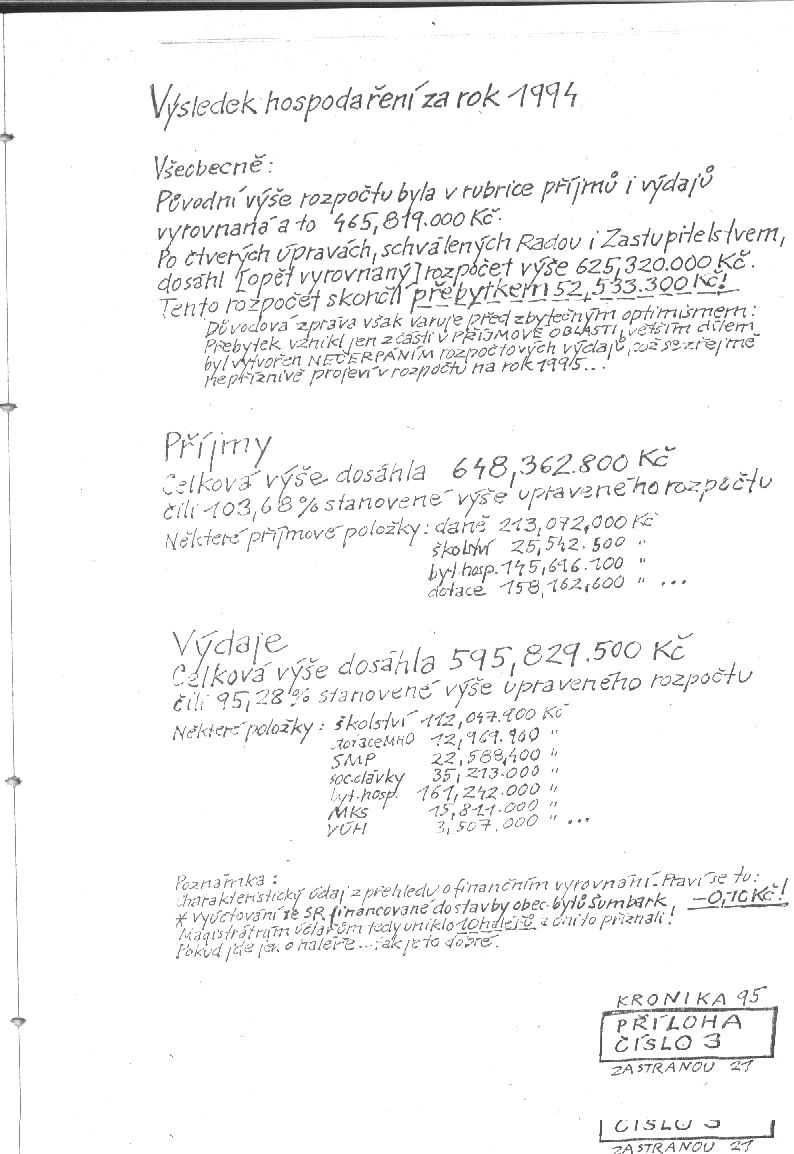 Výsledek hospodaření za rok 1994
Všeobecně:
Původní výše rozpočtu byla v rubrice příjmů i výdajů
vyrovnaná a to 465,819.000 Kč.
Po čtverých úpravách, schválených Radou i Zastupitelstvem,
dosáhl [opět vyrovnaný] rozpočet výše 625,320.000 Kč.
Tento rozpočet skončil přebytkem 52,533.300 Kč!
Důvodová zpráva však varuje před zbytečným optimismem:
Přebytek vznikl jen zčásti v PŘÍJMOVÉ OBLASTI, větším dílem
byl vytvořen NEČERPÁNÍM rozpočtových výdajů, což se zřejmě
nepříznivě projeví v rozpočtu na rok 1995...
Příjmy
Celková výše dosáhla 648,362.800 Kč
čili 103,68% stanovené výše upraveného rozpočtu
Některé příjmové položky: daně 213,072,000 Kč
školství 25,542.500 "
byt.hosp. 145,696.100 "
dotace 158,162,600 " ...
Výdaje
Celková výše dosáhla 595,829.500 Kč
čili 95,28% stanovené výše upraveného rozpočtu
Některé položky: školství 112,047.900 Kč
dotace MHD 12,969.900 "
SMP 22,588,400 "
soc.dávky 35,213.000 "
byt.hosp. 161,242.000 "
MKS 15,811.000 "
VÚH 3,507.000 " ...
Poznámka:
Charakteristický údaj z přehledu o finančním vyrovnání. Praví se tu:
* vyúčtování ze SR financované dostavby obec. bytů Šumbark −0,10 Kč!
Magistrátním účtařům tedy uniklo 10 haléřů a oni to přiznali!
Pokud jde jen o haléře... tak je to dobré.
KRONIKA 95
PŘÍLOHA
ČÍSLO 3
ZA STRANOU 21
ČÍSLO 3
ZA STRANOU 21